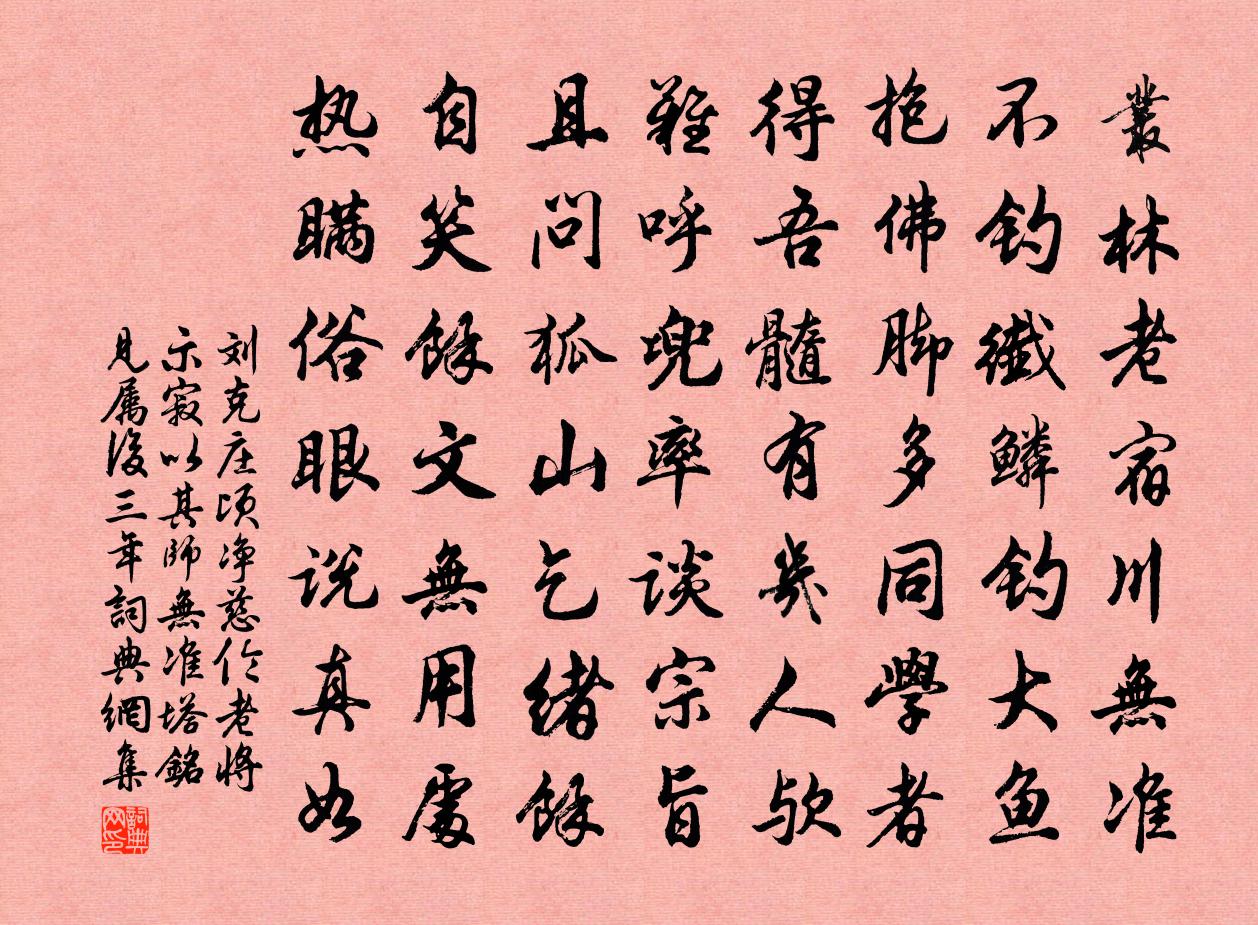 叢林老宿川無准
不钓纖鳞钓大鱼
抱佛脚多同學者
得吾髓有幾人欤
難呼兜率談宗旨
且问狐山乞緒餘
自笑餘文無用處
热瞒俗眼说真如
刘克庄顷净慈伦老将
示寂以其師無准塔銘
見属後三年詞典網集
詞典网印